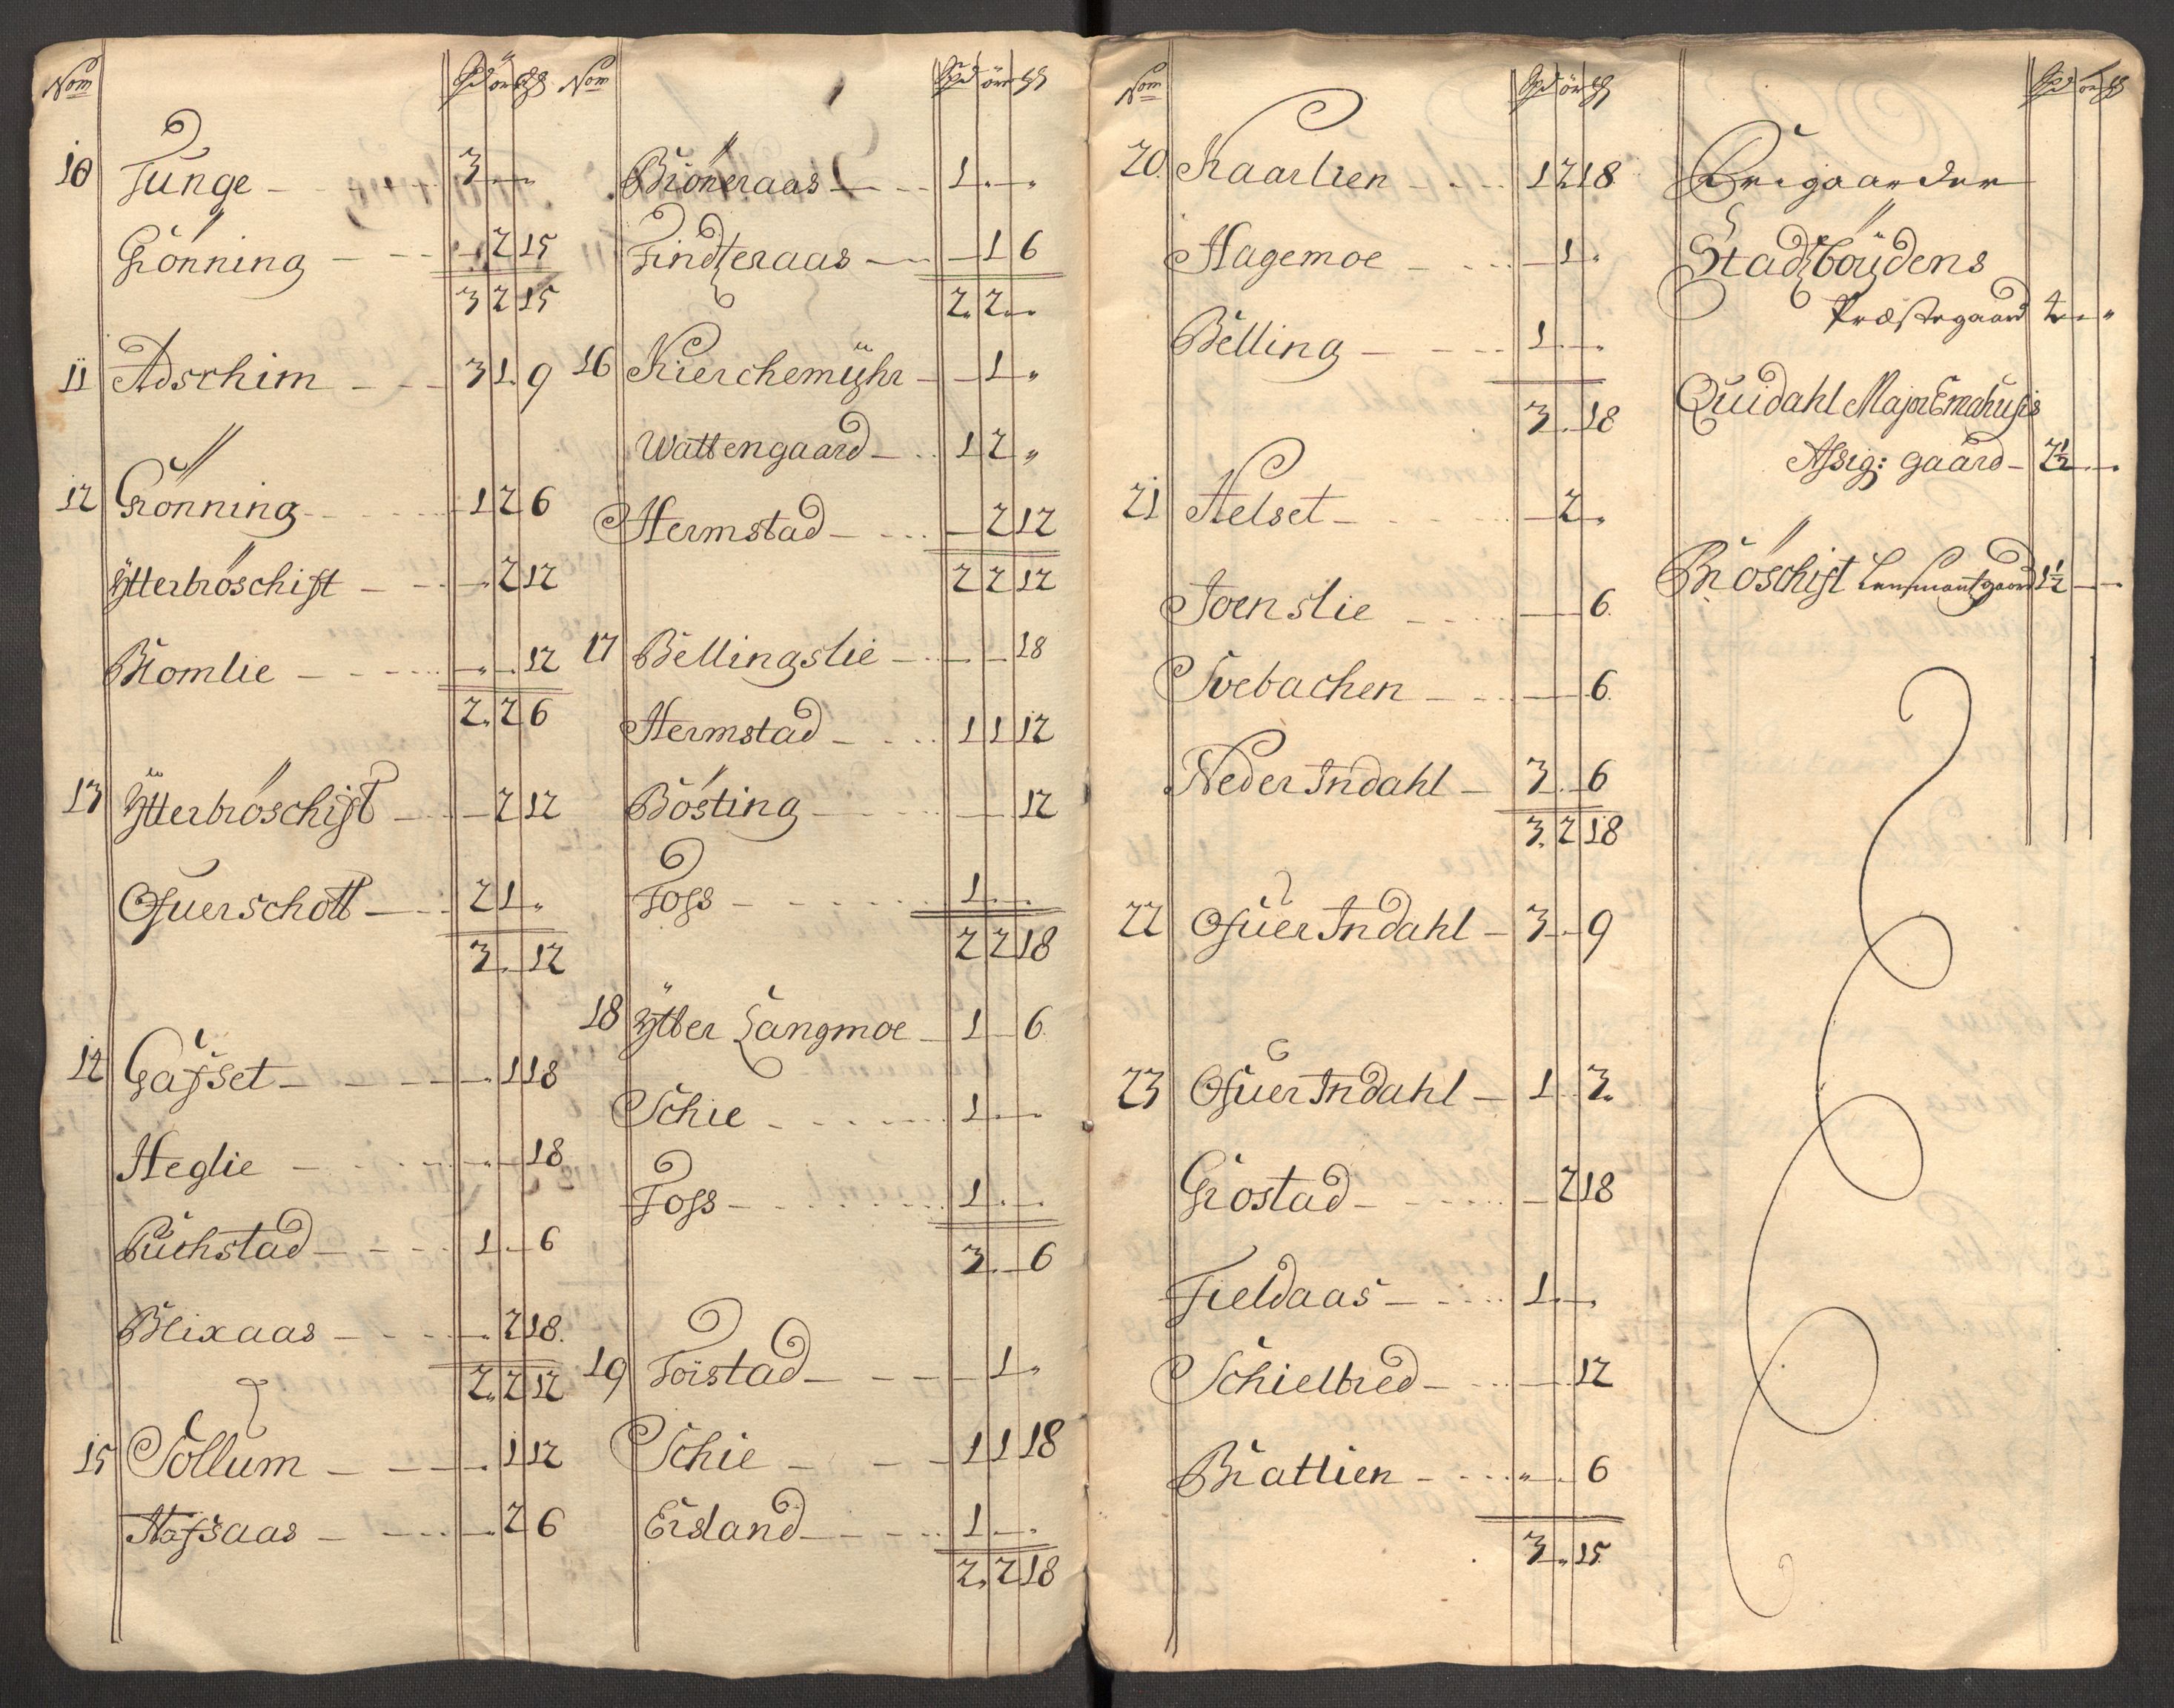 Nom Spd ör mß
10 Tunge - 3 - „
Grönning - - 2 15
3 2 15
11 Adschim - 3 1. 9
12 Grönning - 1 2 6
Ytterbröschift - - 2 12
Bromlie - - . 12
2. 2 6
13 Ytterbröschift - - 2 12
Ofuerschott - 2 1 „
3. 12
14 Gafset - - 1 18
Heglie - - - 18
Puchstad - 1 - 6
Blixaas - - 2 18.
2. 2 12
15 Sollum - - 1 12
Hafsaas - - 2 6
Nom Spd ör mß
Bröneraas - 1 - „
Findteraas - - 1 6
2. 2 -
16 Kierchemyhr - - 1 „
Wattengaard - 1 2 „
Hermstad - - 2 12
2 2 12
17 Bellingslie - - - 18
Hermstad - 1 1 12
Bösting - - - 12
Foss - 1 - -
2 2 18
18 Ytter Langmoe - 1 - 6
Schie - 1 - -
Foss - 1 - -
3. - 6
19 Forstad - - 1 „
Schie - 1 1 18
Ersland - 1 - -
2. 2 18
Nom Spd ör mß
20. Kaarlien - 1 2 18
Hagemoe - - 1 „
Belling - 1 - „
3. 18
21 Helset - - 2 „
Joenslie - - - 6.
Svebachen - - - 6.
Neder Indahl - 3 - 6
3. 2 18
22 Ofuer Indahl - 3 - 9
23 Ofuer Indahl - 1 3.
Grostad - - 2 18
Fieldaas - 1 - „
Schielbred - - - 12
Brattlien - „ - 6
3. 15
Spd ör mß
Frigaarder
Stadzböydens
Præstegaard 4 - „
Quidahl Major Emahusis
Assig: gaard - 2½ - -
Bröschift Lensmantzgaard 1½ - -